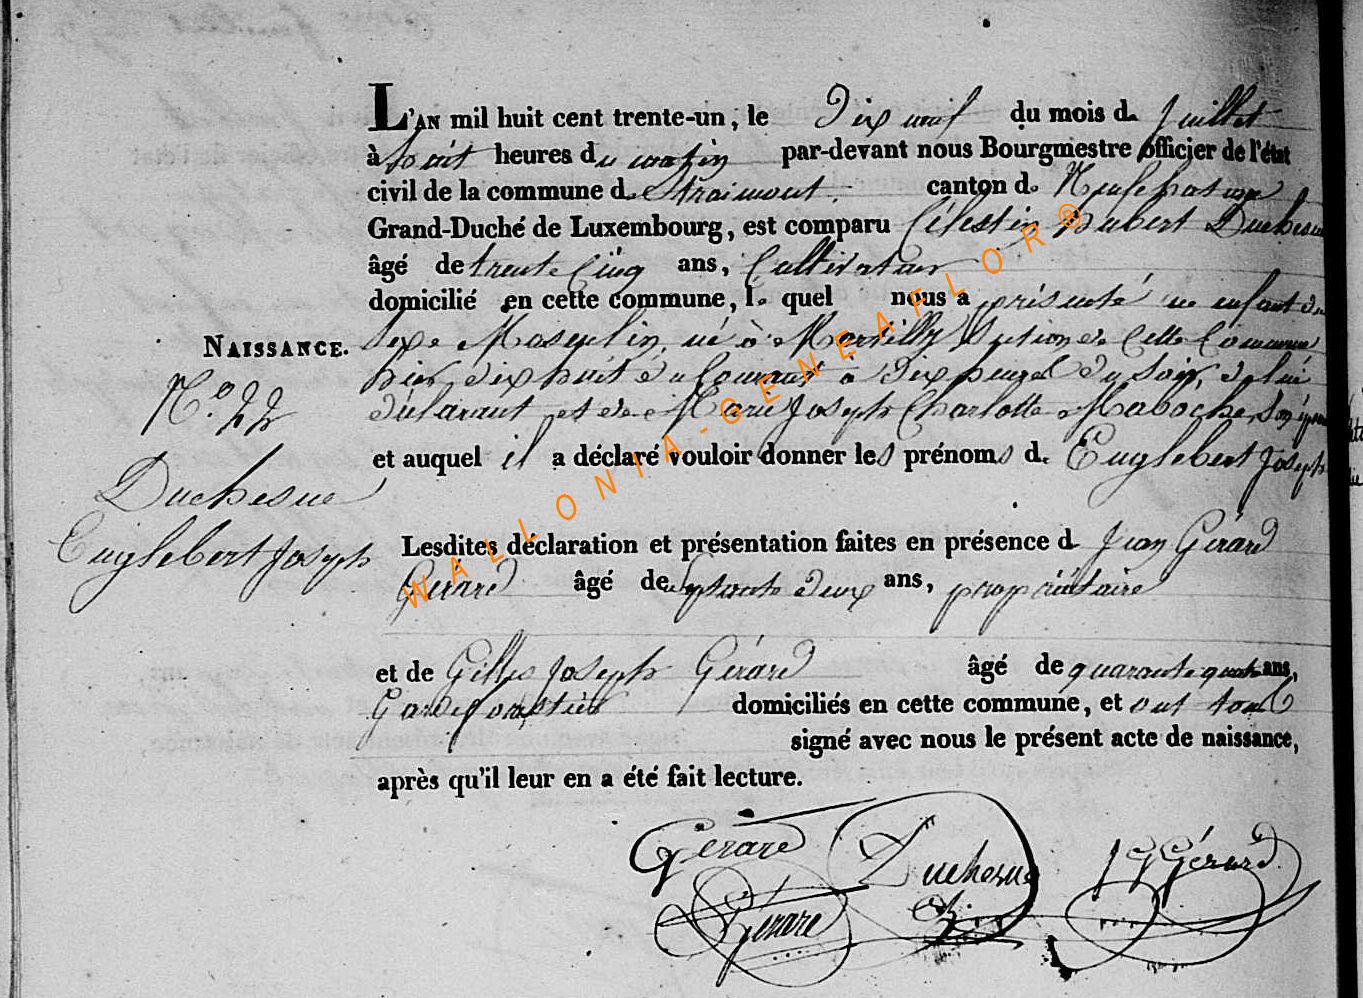 L'AN mil huit cent trente-un, le Dix neuf du mois de Juillet
à huit heures du matin par-devant nous Bourgmestre officier de l'état
civil de la commune de Straimont. canton de Neufchateau
Grand-Duché de Luxembourg, est comparu Célestin Hubert Duchesne
âgé de trente Cinq ans, Cultivateur
domicilié en cette commune, le quel nous a présenté un enfant du
NAISSANCE. Sexe Masculin, né à Martilly Section de Cette Commune
hier, dix huit du Courant à Dix heures Du Soir, de lui
N.º 22 déclarant et de Marie Joseph Charlotte Maboche, Son épouse
et auquel il a déclaré vouloir donner les prénoms de Englebert Joseph
Duchesne
Englebert Joseph
Lesdites déclaration et présentation faites en présence de Jean Gérard
Gerard âgé de Septante deux ans, propriétaire
et de Gilles Joseph Gérard âgé de quarante quatre ans,
Garde forestier domiciliés en cette commune, et ont tous
signé avec nous le présent acte de naissance,
après qu'il leur en a été fait lecture.
Gérard Duchesne J G Gérard
Gerard
WALLONIA-GENEAFLOR®